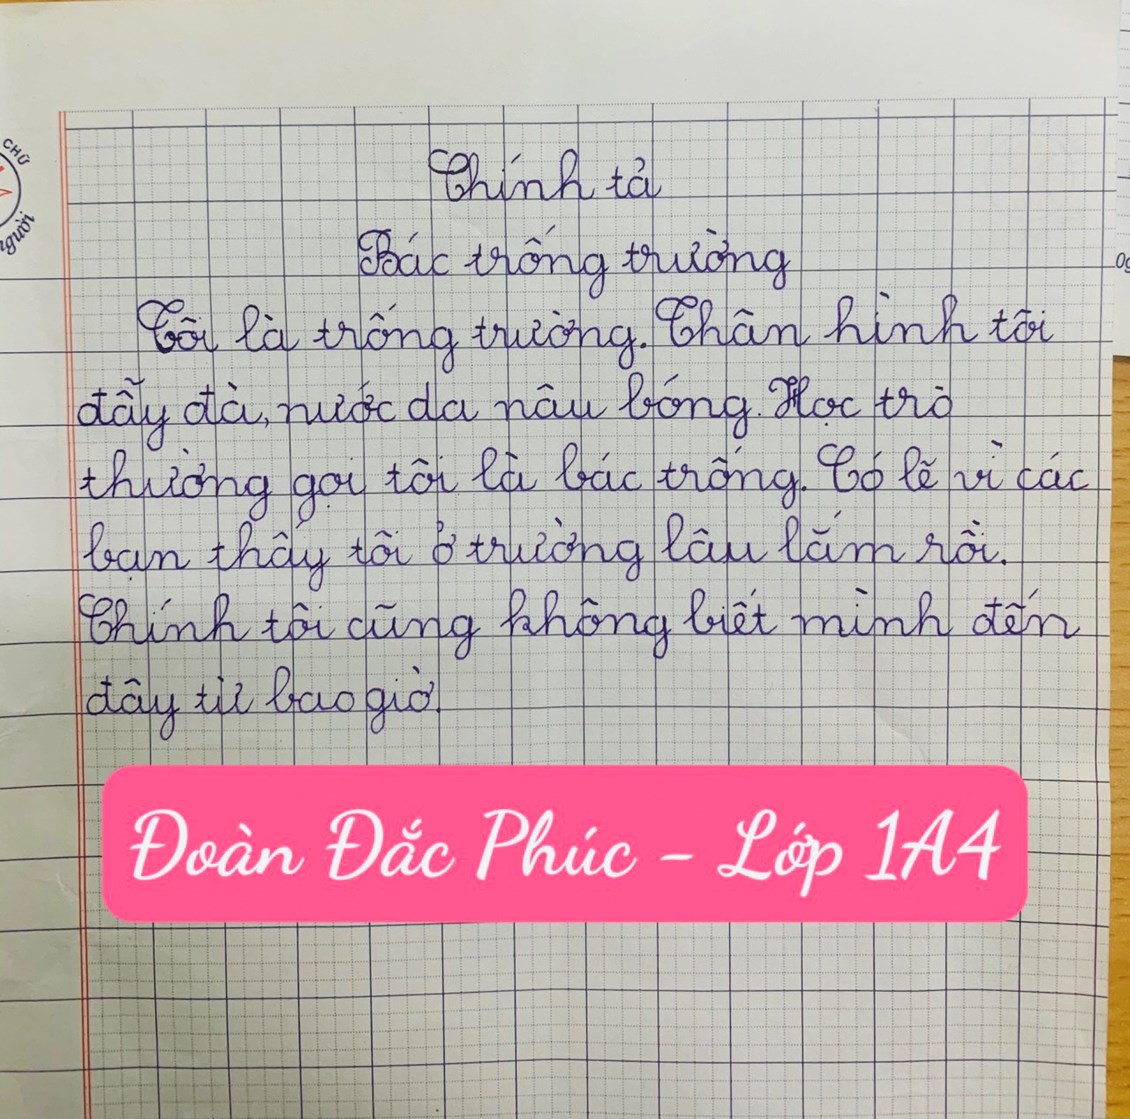 CHỮ
người
Chính tả
Bác trống trường
Tôi là trống trường. Thân hình tôi
đẫy đà, nước da nâu bóng. Học trò
thường gọi tôi là bác trống. Có lẽ vì các
bạn thấy tôi ở trường lâu lắm rồi.
Chính tôi cũng không biết mình đến
đây từ bao giờ.
Đoàn Đắc Phúc - Lớp 1A4